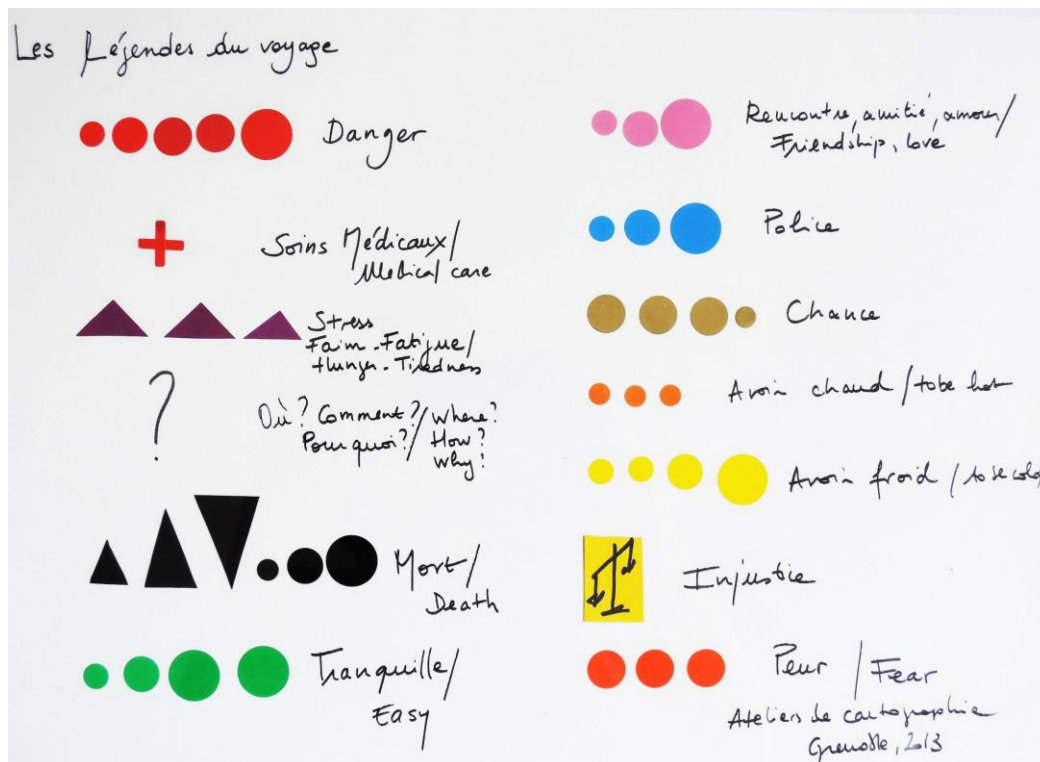 Les Légendes du voyage
Danger
Soins Médicaux/
Medical care
Stress
Faim - Fatigue/
Hunger - Tiredness
?
Où? Comment?/Where?
Pourquoi?/How?
Why?
Mort/
Death
Tranquille/
Easy
Rencontre, amitié, amour/
Friendship, love
Police
Chance
Avoir chaud/to be hot
Avoir froid/to be cold
Injustice
Peur / Fear
Ateliers de cartographie
Grenoble, 2013